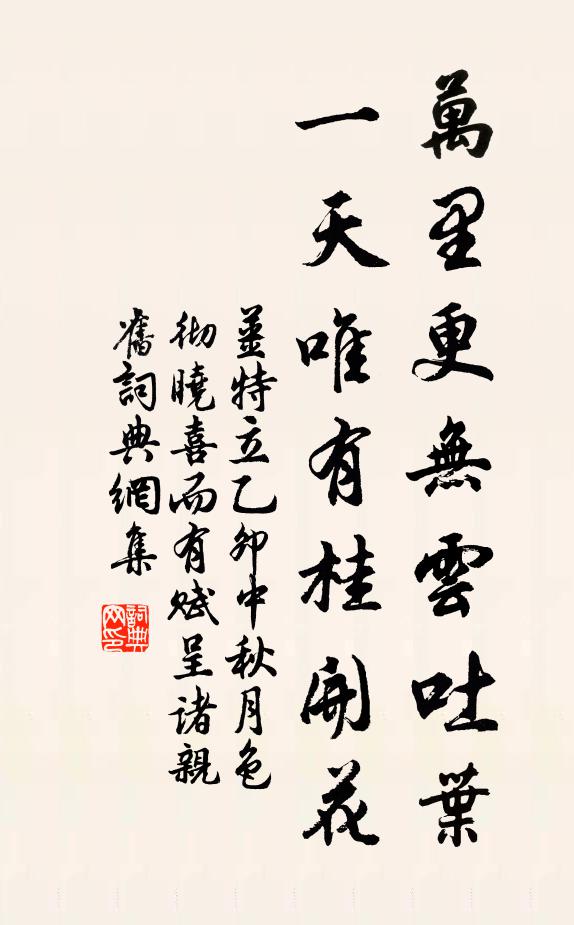 萬里更無雲吐葉
一天唯有桂開花
姜特立乙卯中秋月色
彻曉喜而有赋呈诸親
舊詞典網集
詞典网印